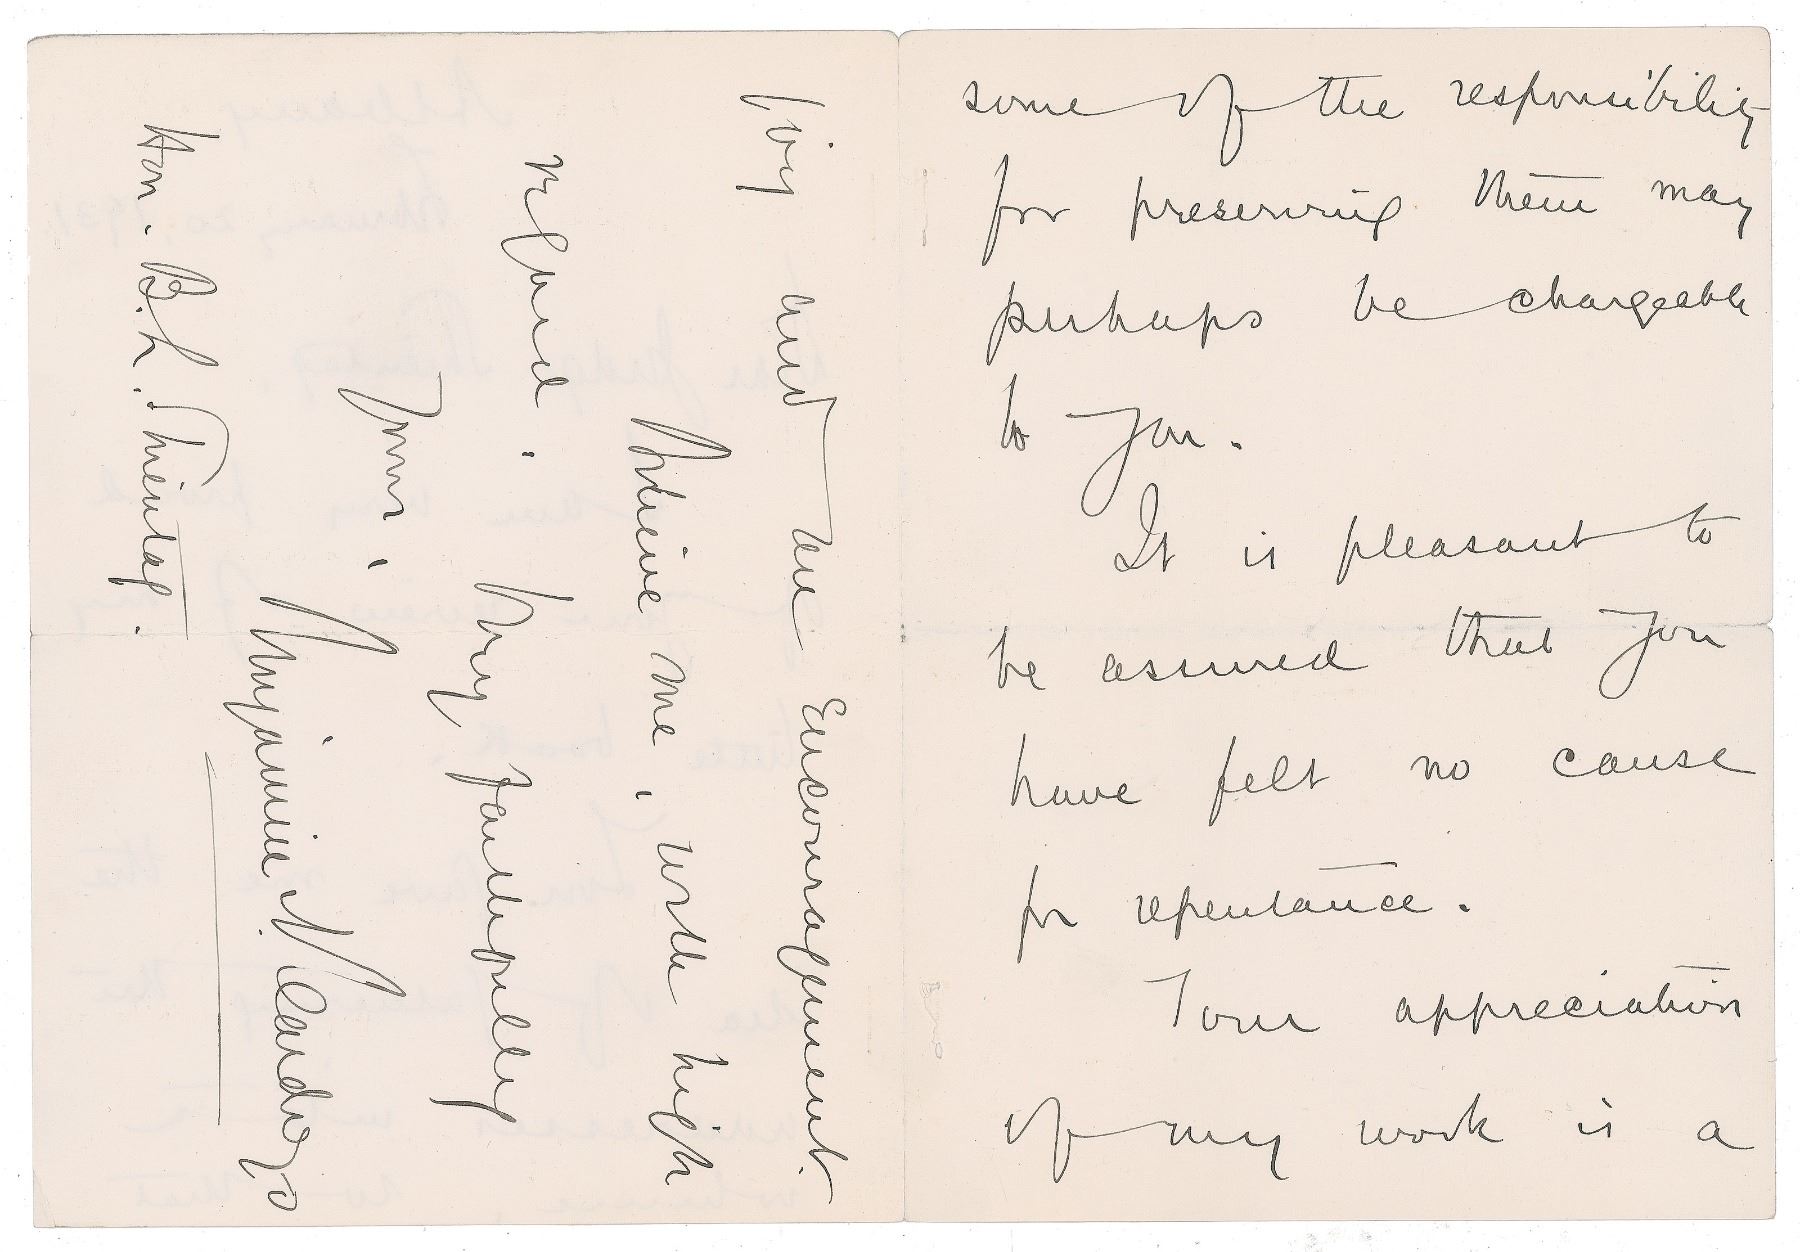 some of the responsibility
for preserving them may
perhaps be chargeable
to you.
It is pleasant to
be assured that you
have felt no cause
for repentance.
Your appreciation
of my work is a
joy and an encouragement.
Believe me, with high
regard,
Very faithfully
yours,
Benjamin N. Cardozo
Hon. B. L. Shientag.